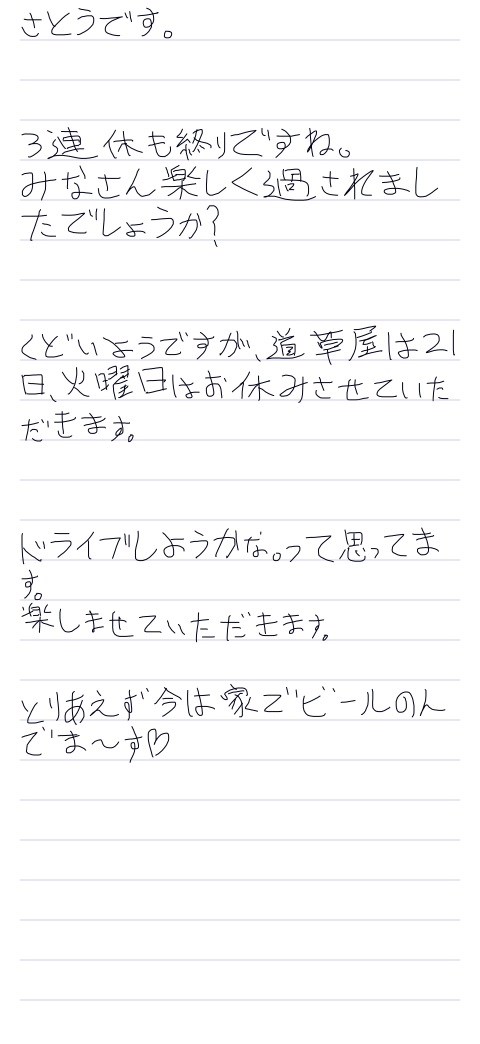 さとうです。
3連休も終りですね。
みなさん楽しく過されまし
たでしょうか?
くどいようですが、道草屋は21
日、火曜日はお休みさせていた
だきます。
ドライブしようかな。って思ってま
す。
楽しませていただきます。
とりあえず今は家でビールのん
でま〜す♡